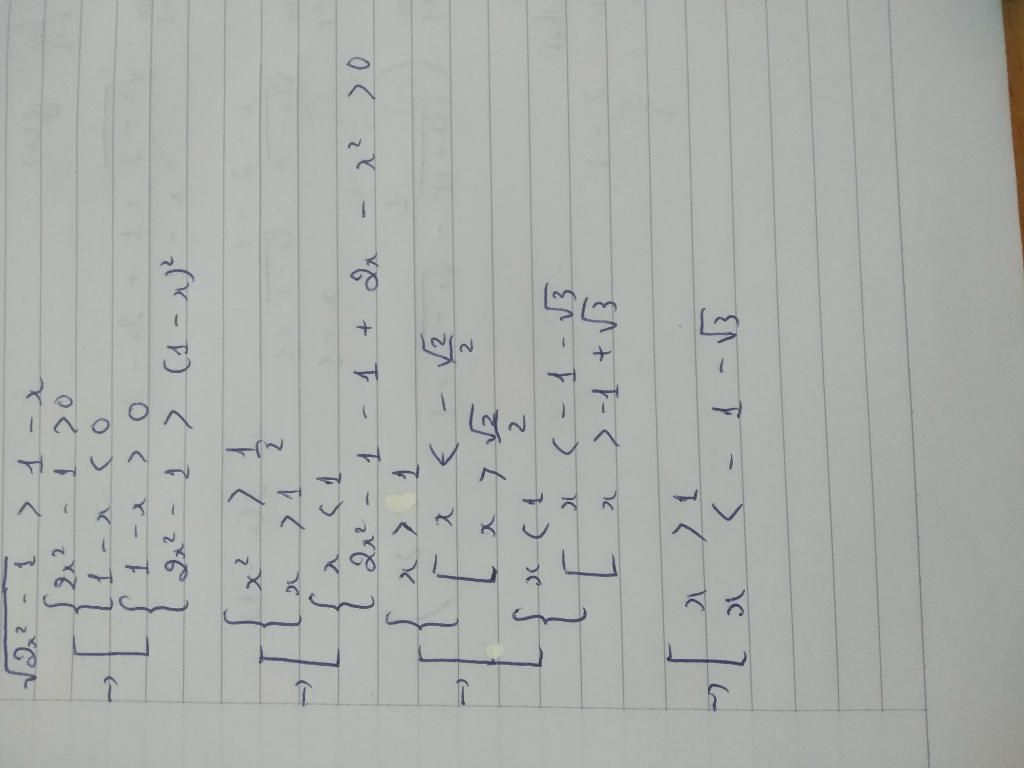 √(2x² - 1) > 1 - x
{ 2x² - 1 > 0
→ [ { 1 - x < 0
{ 1 - x > 0
{ 2x² - 1 > (1 - x)²
{ x² > 1/2
→ [ { x > 1
{ x < 1
{ 2x² - 1 - 1 + 2x - x² > 0
{ x > 1
→ [ { [ x < - √2/2
[ x > √2/2
{ x < 1
{ [ x < - 1 - √3
[ x > -1 + √3
→ [ x > 1
x < - 1 - √3